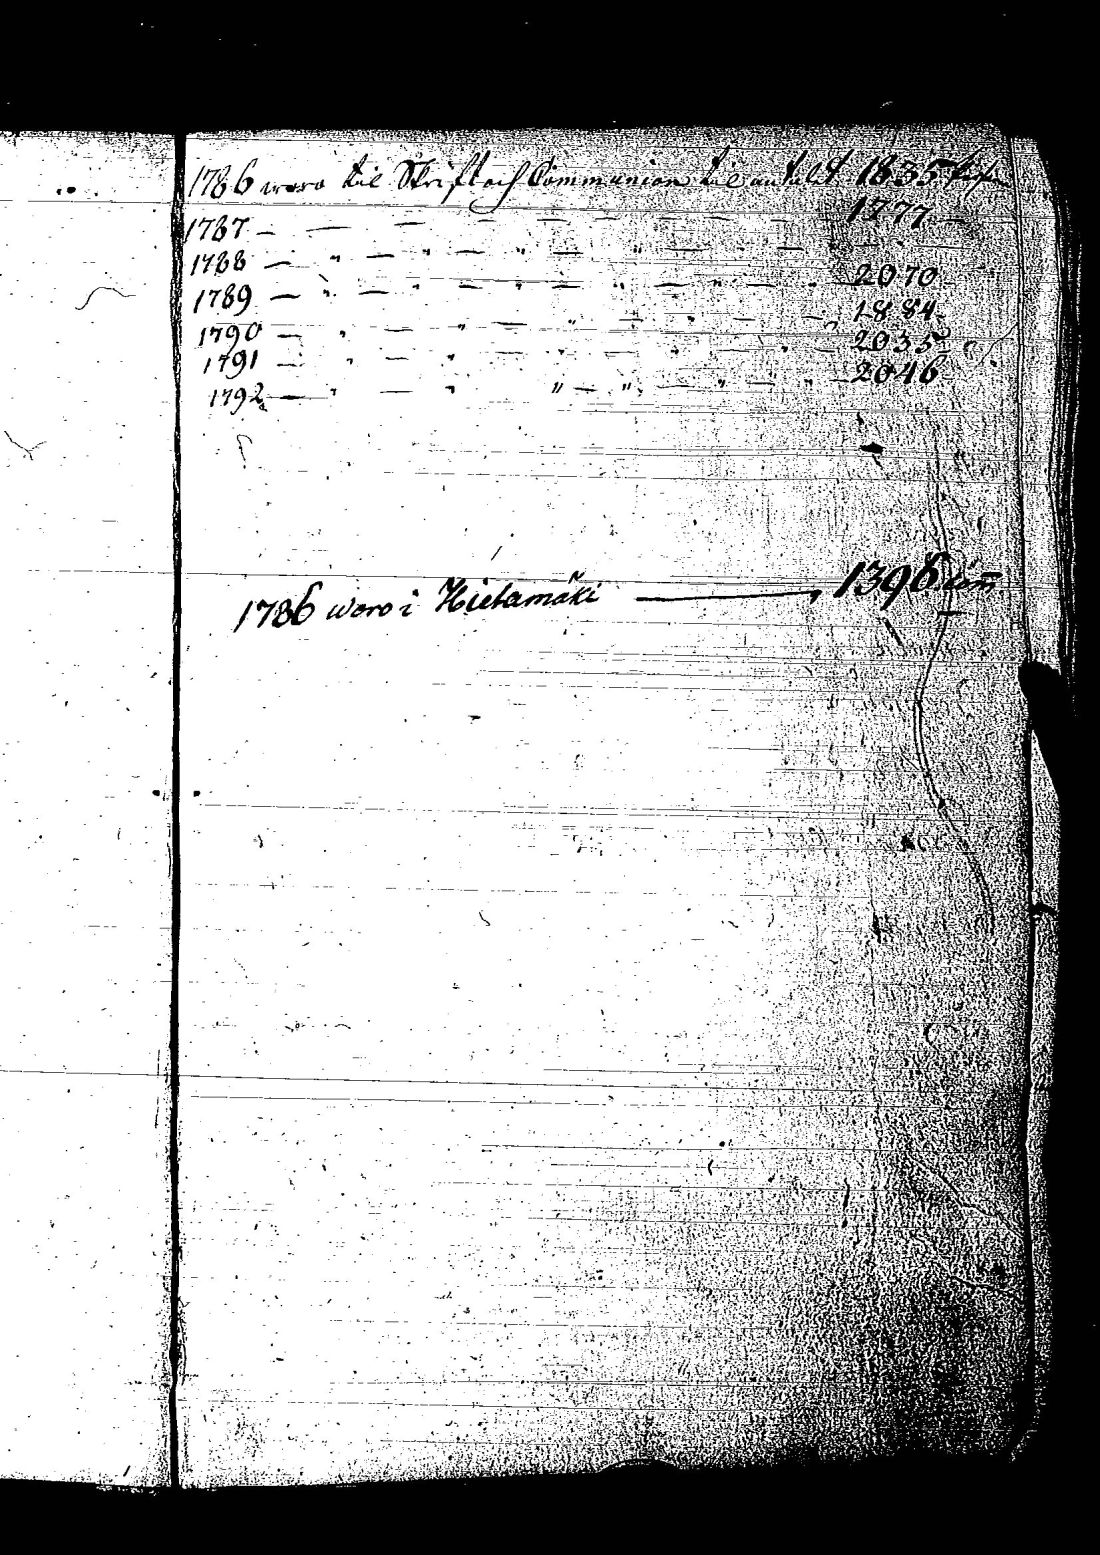 1786 woro til Skrift och Communion til antalet 1835 pers
1787 — — — — — — — 1777 —
1788 — " — " — " — " — " — —
1789 — " — " — " — " — " — " 2070
1790 — " — — " — " — — 1884
1791 — " — " — " — " — " — 2035
1792 — " — " " — " — " " " — 2046
1786 woro i Hietamäki — 1396